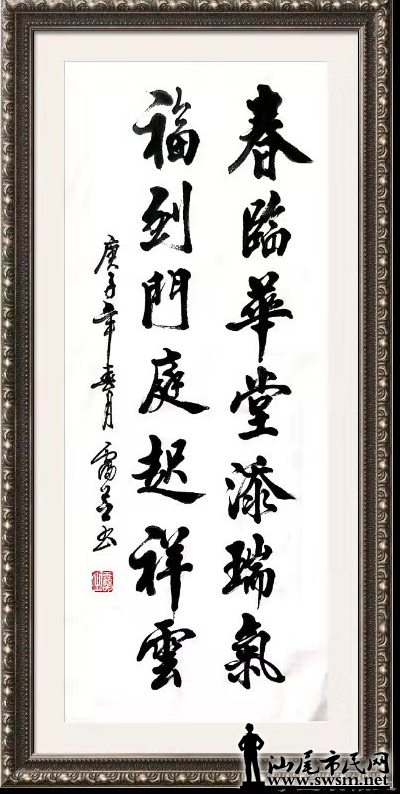 春臨華堂添瑞氣
福到門庭起祥雲
庚子年春月
書
汕尾市民网
www.swsm.net